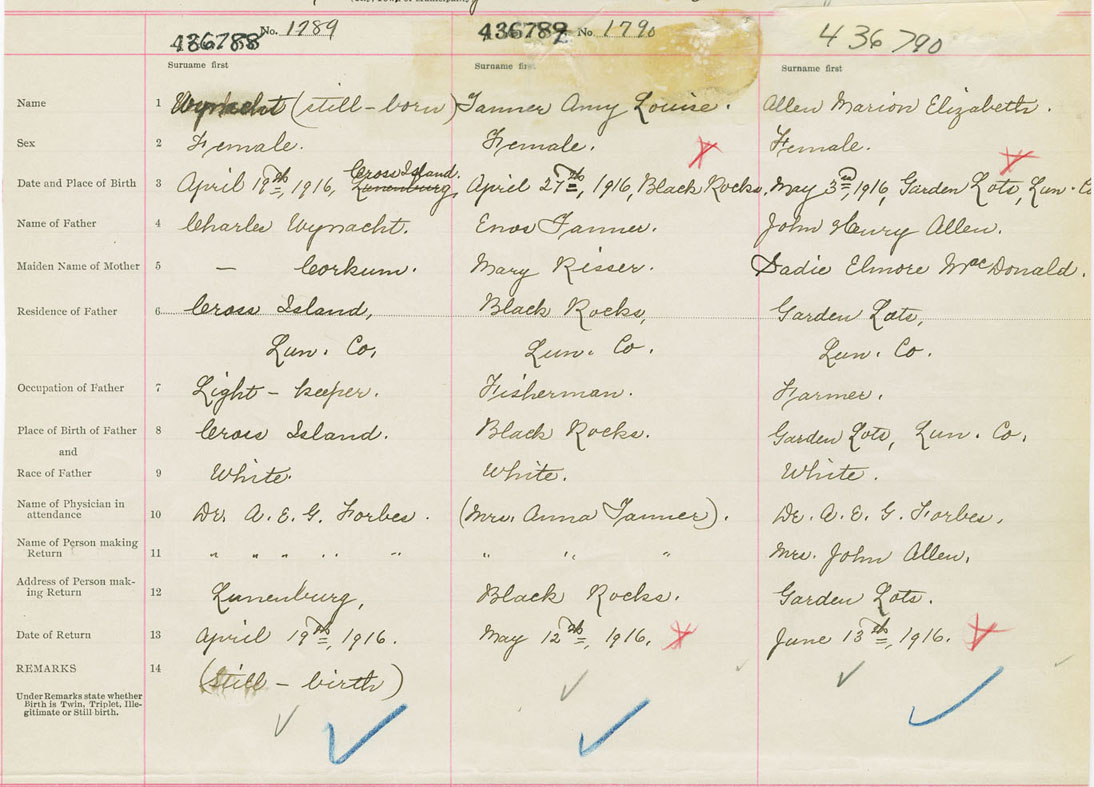 436788 No. 1789 436789 No 1790 436790
Surname first Surname first Surname first
Name 1 Wynacht (still-born) Tanner Amy Louise. Allen Marion Elizabeth.
Sex 2 Female. Female. Female.
Cross Island.
Date and Place of Birth 3 April 19th, 1916, Lunenburg, April 27th, 1916, Black Rocks, May 3rd, 1916, Garden Lots, Lun. Co
Name of Father 4 Charles Wynacht. Enos Tanner. John Henry Allen.
Maiden Name of Mother 5 — Corkum. Mary Risser. Sadie Elmore MacDonald.
Residence of Father 6 Cross Island, Black Rocks, Garden Lots,
Lun. Co. Lun. Co. Lun. Co.
Occupation of Father 7 Light-keeper. Fisherman. Farmer.
Place of Birth of Father 8 Cross Island. Black Rocks. Garden Lots, Lun. Co.
and
Race of Father 9 White. White. White.
Name of Physician in
attendance 10 Dr. A. E. G. Forbes. (Mrs. Anna Tanner). Dr. A. E. G. Forbes.
Name of Person making
Return 11 " " " " " " " " Mrs. John Allen.
Address of Person mak-
ing Return 12 Lunenburg, Black Rocks. Garden Lots.
Date of Return 13 April 19th, 1916. May 12th, 1916. June 13th, 1916.
REMARKS 14 (still-birth)
Under Remarks state whether
Birth is Twin, Triplet, Ille-
gitimate or Still-birth.